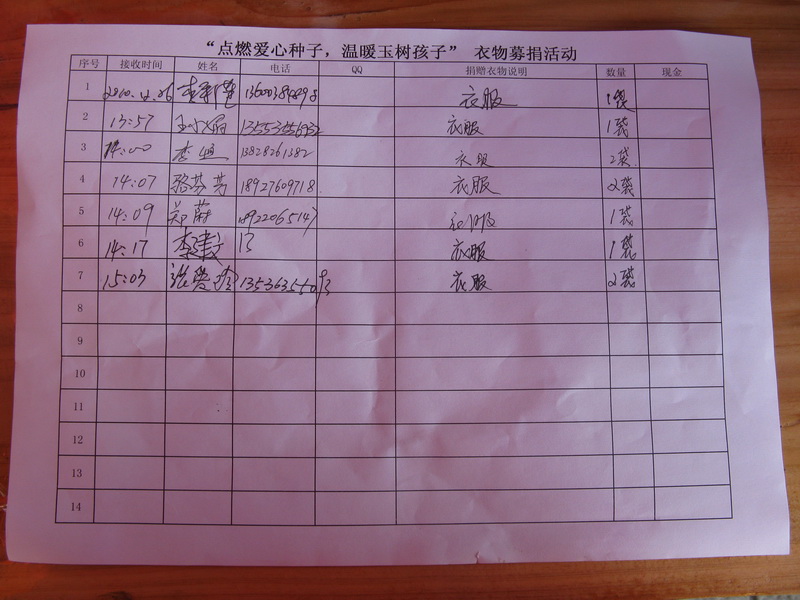 “点燃爱心种子，温暖玉树孩子” 衣物募捐活动
序号 接收时间 姓名 电话 QQ 捐赠衣物说明 数量 现金
1 衣服 1袋
2 13:57 衣服 1袋
3 14:00 13828261382 衣服 2袋
4 14:07 骆芬芳 18927609718 衣服 2袋
5 14:09 郑蔚 衣服 1袋
6 14:17 13 衣服 1袋
7 15:03 衣服 2袋
8
9
10
11
12
13
14